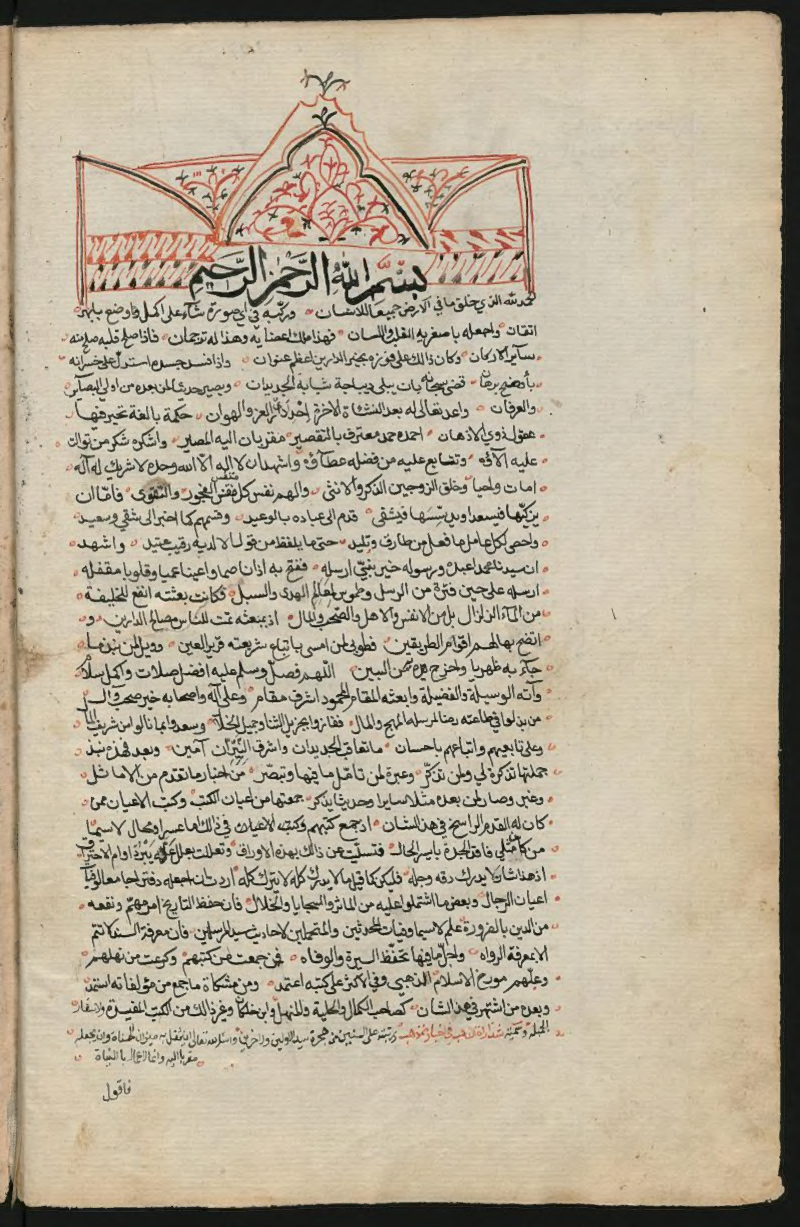 بسم الله الرحمن الرحيم
الحمد لله الذي خلق ما في الارض جميعا للانسان ورتبه في اي صورة شآء على اكمل وضع بابهر
اتقان واجعله باصغريه القلب واللسان فهذا ملك اعضايه وهذا له ترجمان فاذا صلح قلبه صلح منه
سآير الاركان وكان ذالك على فوزه بخير الدارين اعظم عنوان واذا فسد جسده استدل على خسرانه
باوضح برهان قضى سبحانه بان يبلى ديباجة شبابه الجديدان ويصير حديثا لمن بعده من اولي البصآير
والعرفان واعد تعالى له بعد النشئاة الاخرة احدى العز والهوان حكمة بالغة تحير فيها
عقول ذوي الاذهان احمده حمد معترف بالتقصير مقر بان اليه المصير واشكره شكر من توالت
عليه الآؤه وتتابع عليه من فضله عطآؤه واشهد ان لا اله الا الله وحده لا شريك له آله
امات واحيا وخلق الزوجين الذكر والانثى والهم نفس كل متنفس الفجور والتقوى فاما ان
يزكيها فيسعد او يدسسها فيشقى قدم الى عباده بالوعيد وقسمهم كما اخبر الى شقي وسعيد
واحصى لكل عامل ما فعل من طارف وتليد حتى ما يلفظ من قول الا لديه رقيب عتيد واشهد
ان سيدنا محمدا عبده ورسوله خير نبي ارسله ففتح به اذان صما واعينا عميا وقلوبا مقفله
ارسله على حين فترة من الرسل وطموس لمعالم الهدى والسبل فكانت بعثته انفع للخليقة
من المآء الزلال بل من الانفس والاهل والمال اذ بمبعثه تمت للناس مصالح الدارين و
اتضح بها لهم اقوام الطريقين فطوبى لمن امسى باتباع شريعته قرير العين وويل لمن نبذ ما
جآء به ظهريا اللهم فصل وسلم عليه افضل صلات واكمل سلام
وآته الوسيلة والفضيلة وابعثه المقام المحمود اشرف مقام وعلى آله واصحابه خير صحب وآل
من بذلوا في طاعته رضا لمرسله المهج والمال ففازوا بجزيل الثنا وجميل الخلال وسعدوا بما نالوا من شريف
وعلى تابعيهم واتباعهم باحسان ما تعاقب الجديدان واشرق النيران آمين وبعد فهذه نبذ
جملتها تذكرة لي ولمن تذكر وعبرة لمن تامل ما فيها وتبصر من اخبار من تقدم من الاماثل
وغبر وصار لمن بعده مثلا سايرا وحديثا يذكر جمعتها من اعيان الكتب وكتب الاعيان ممن
كان له القدم الراسخ في هذا الشان اذ جمع كتبهم وكتب الاعيان في ذالك اما عسر او محال لا سيما
من كان مثلي فاقد الجدة بايس الحال فتسليت عن ذالك بهذه الاوراق وتعللت
اذ هذا شان لا يدرك دقه وجله فليكن كما قيل ما لا يدرك كله لا يترك كله اردت ان اجعله دفترا جامعا لوفيات
اعيان الرجال وبعض ما اشتملوا عليه من الماثر والسجايا والخلال فان حفظ التاريخ امر مهم ونفعه
من الدين بالضرورة علم لا سيما وفيات المحدثين والمتحملين لاحاديث سيد المرسلين فان معرفة السند لا تتم
الا بمعرفة الرواه واجل ما فيها تحفظ السيرة والوفاه فمن جمعت من كتبهم وكرعت من نهلهم
وعلهم مورخ الاسلام الذهبي وفي الاكثر على كتبه اعتمد ومن مشكاة ما جمع من مؤلفاته استمد
وبعده من اشتهر في هذا الشان كصاحب الكمال والحلية والمنهل وابن خلكان وغير ذالك من الكتب المفيدة والاسفار
الجملة وسميته شذرات الذهب في اخبار من ذهب ورتبته على السنين من هجرة سيد الاولين والاخرين واسال الله تعالى ان يثقل به ميزان الحسنات وان يجعله
مقربا اليه وانما الاعمال بالنيات
فاقول